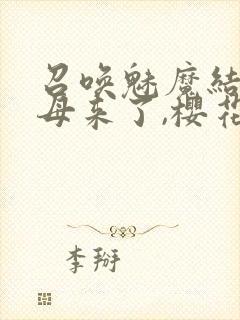 召唤魅魔结
母来了,樱花
李掰